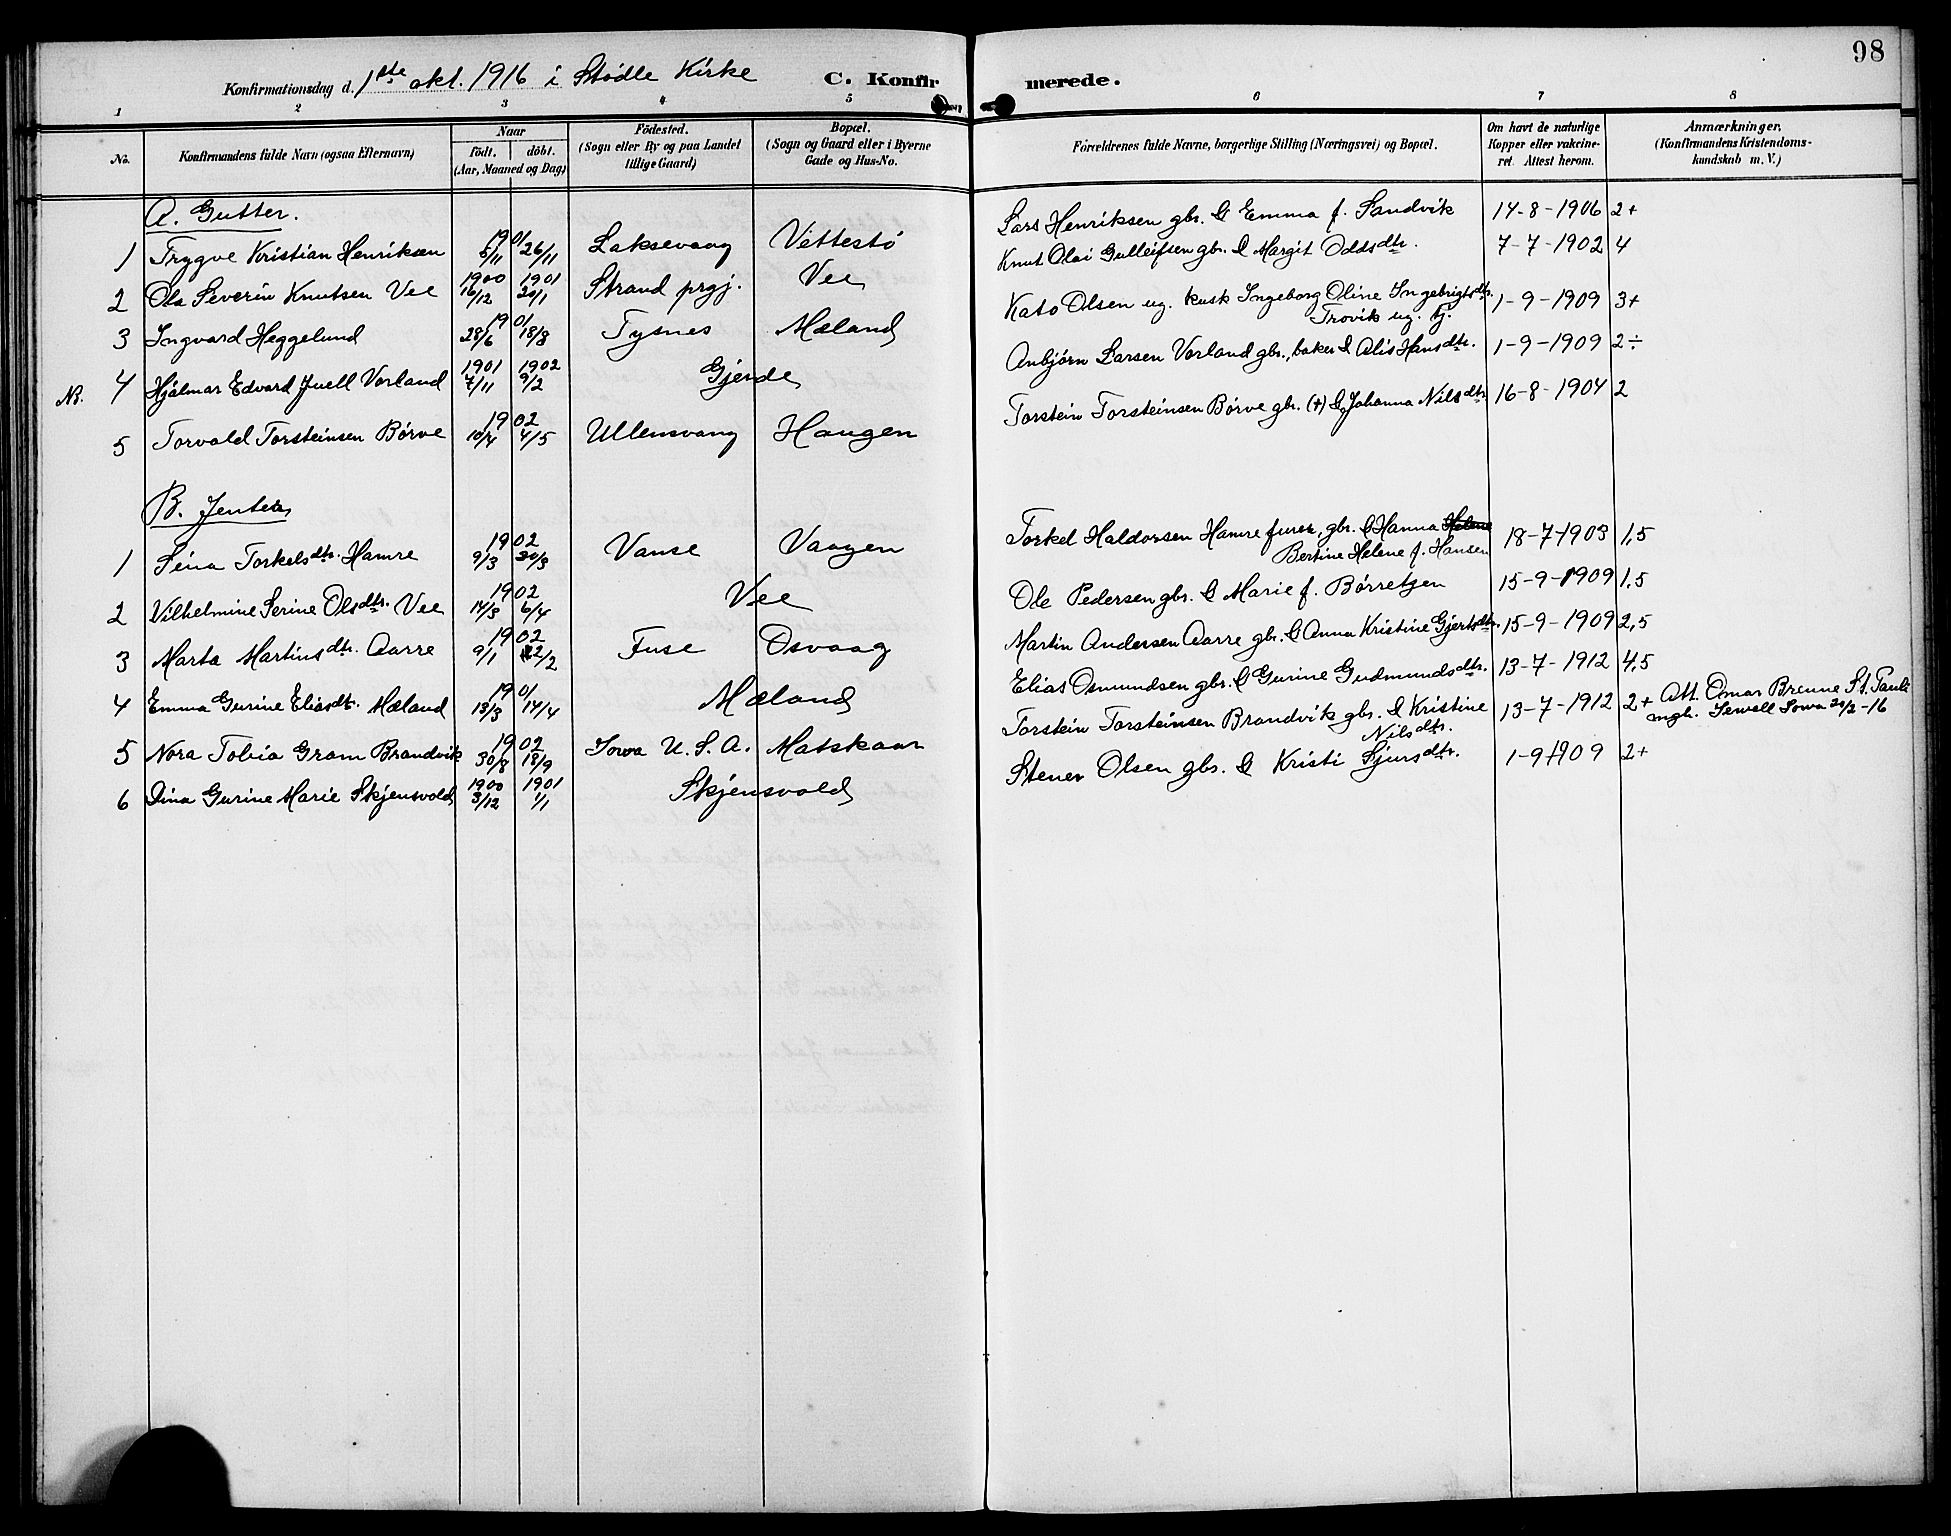 98
Konfirmationsdag d. 1ste okt. 1916 i Stødle Kirke C. Konfirmerede.
1 2 3 4 5 6 7 8
No. Konfirmandens fulde Navn (ogsaa Efternavn) Naar Födested. Bopæl. Forældrenes fulde Navne, borgerlige Stilling (Næringsvei) og Bopæl. Om havt de naturlige Anmærkninger.
födt. döbt. (Sogn eller By og paa Landet (Sogn og Gaard eller i Byerne Kopper eller vakcine- (Konfirmandens Kristendoms-
(Aar, Maaned og Dag) tillige Gaard) Gade og Hus-No. ret. Attest herom. kundskab m. V.)
A. Gutter.
1 Trygve Kristian Henriksen 1901 6/11 26/11 Laksevaag Vettestø Lars Henriksen gbr. & Emma f. Sandvik 14-8-1906 2+
2 Ole Severin Knutsen Vee 1900 16/12 1901 20/1 Strand prgj. Vee Knut Olai Gulleifsen gbr. & Margit Oddsdtr. 7-7-1902 4
3 Ingvard Heggelund 1901 28/6 18/8 Tysnes Mæland Kato Olsen ug. kusk Ingeborg Oline Ingebrigtsdtr. 1-9-1909 3+
Trovik ug. tj.
NB. 4 Hjalmar Edvard Juell Vorland 1901 7/11 1902 9/2 Gjerde Anbjørn Larsen Vorland gbr., baker & Alis Hansdtr. 1-9-1909 2÷
5 Torvald Torsteinsen Børve 1902 10/4 4/5 Ullensvang Haugen Torstein Torsteinsen Børve gbr. (+) & Johanna Nilsdtr 16-8-1904 2
B. Jenter
1 Sina Torkelsdtr. Hamre 1902 9/3 30/3 Vanse Vaagen Torkel Haldorsen Hamre furer, gbr. & Hanna Helene 18-7-1903 1,5
Bertine Helene f. Hansen
2 Vilhelmine Serine Olsdtr. Vee 1902 14/3 6/4 Vee Ole Pedersen gbr. & Marie f. Børretzen 15-9-1909 1,5
3 Marta Martinsdtr. Aarre 1902 9/1 22/2 Fuse Osvaag Martin Andersen Aarre gbr. & Anna Kristine Gjertsdtr. 15-9-1909 2,5
4 Emma Gurine Eliasdtr. Mæland 1901 13/3 14/4 Mæland Elias Osmundsen gbr. & Gurine Gudmundsdtr. 13-7-1912 4,5
5 Nora Tobia Gram Brandvik 1902 30/8 18/9 Iowa U.S.A. Matskaar Torstein Torsteinsen Brandvik gbr. & Kristine 13-7-1912 2+ Att. Omar Brenne St. Pauls
Nilsdtr. mgh. Jewell Iowa 20/2-16
6 Dina Gurine Marie Skjensvold 1900 3/12 1901 1/1 Skjensvold Stener Olsen gbr. & Kristi Sjursdtr. 1-9-1909 2+